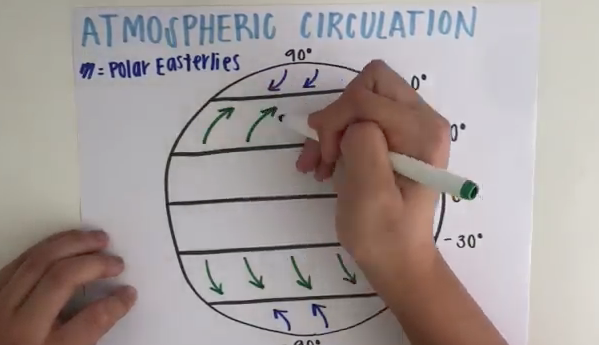 ATMOSPHERIC CIRCULATION
= Polar Easterlies
90°
0°
0°
-30°